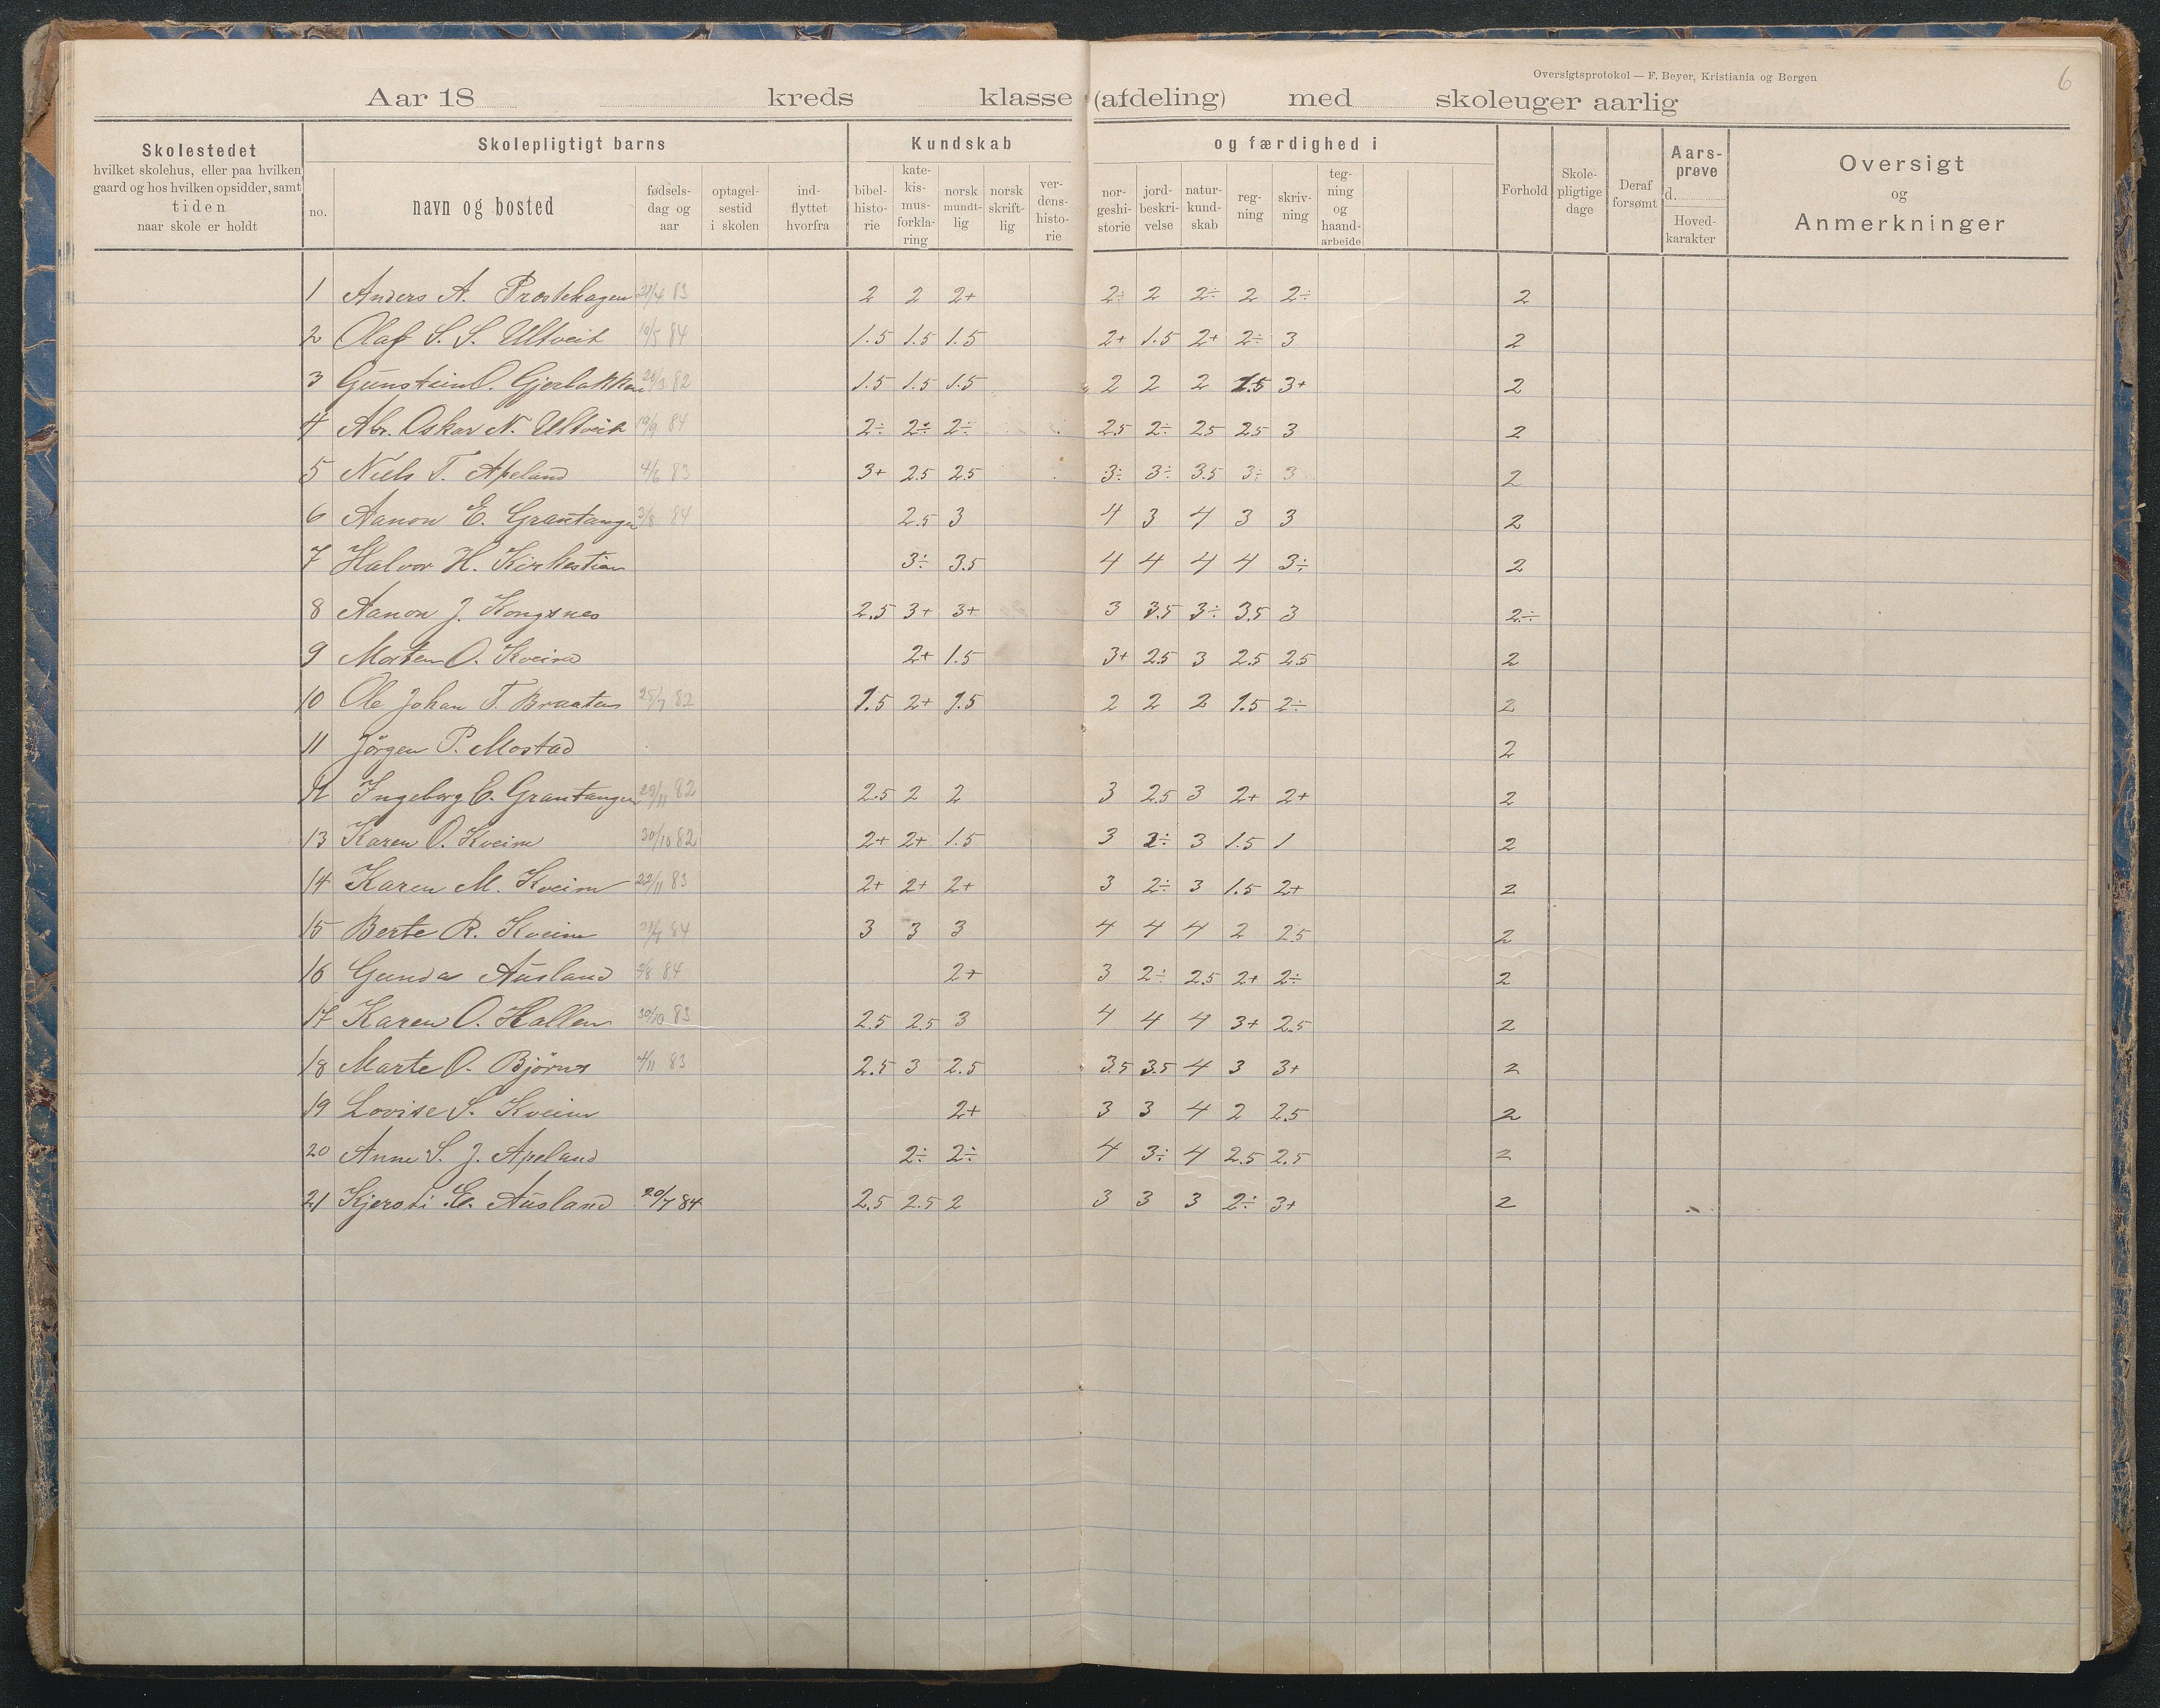 Oversigtsprotokol — F. Beyer, Kristiania og Bergen
6
Aar 18 kreds klasse (afdeling) med skoleuger aarlig
Skolestedet hvilket skolehus, eller paa hvilken gaard og hos hvilken opsidder, samt tiden naar skole er holdt
Skolepligtigt barns
no. navn og bosted fødsels-dag og aar optagel-sestid i skolen ind-flyttet hvorfra
Kundskab og færdighed i
bibel-histo-rie kate-kis-mus-forkla-ring norsk mundt-lig norsk skrift-lig ver-dens-histo-rie nor-geshi-storie jord-beskri-velse natur-kund-skab reg-ning skriv-ning teg-ning og haand-arbeide
Forhold Skole-pligtige dage Deraf forsømt Aars-prøve d. Hoved-karakter
Oversigt og Anmerkninger
1 Anders A. Prostehagen 24/4 83 2 2 2+ 2÷ 2 2÷ 2 2÷ 2
2 Olaf S. S. Ultveit 19/5 84 1.5 1.5 1.5 2+ 1.5 2+ 2÷ 3 2
3 Gunstein O. Gjerbakken 24/3 82 1.5 1.5 1.5 2 2 2 1.5 3+ 2
4 Abr. Oskar N. Ultveit 19/9 84 2÷ 2÷ 2÷ 2.5 2÷ 2.5 2.5 3 2
5 Niels T. Apeland 4/6 83 3+ 2.5 2.5 3÷ 3÷ 3.5 3÷ 3 2
6 Aanon E. Grantangen 3/8 84 2.5 3 4 3 4 3 3 2
7 Halvor H. Kirkestien 3÷ 3.5 4 4 4 4 3÷ 2
8 Aanon J. Kongsnes 2.5 3+ 3+ 3 3.5 3÷ 3.5 3 2÷
9 Morten O. Kveim 2+ 1.5 3+ 2.5 3 2.5 2.5 2
10 Ole Johan T. Braaten 25/7 82 1.5 2+ 1.5 2 2 2 1.5 2÷ 2
11 Jörgen P. Mostad 2
12 Ingeborg E. Grantangen 29/11 82 2.5 2 2 3 2.5 3 2+ 2+ 2
13 Karen O. Kveim 30/10 82 2+ 2+ 1.5 3 2÷ 3 1.5 1 2
14 Karen M. Kveim 22/11 83 2+ 2+ 2+ 3 2÷ 3 1.5 2+ 2
15 Berte R. Kveim 84 3 3 3 4 4 4 2 2.5 2
16 Gunda Ausland 84 2+ 3 2÷ 2.5 2+ 2÷ 2
17 Karen O. Hallen 30/10 83 2.5 2.5 3 4 4 4 3+ 2.5 2
18 Marte O. Björnes 4/11 83 2.5 3 2.5 3.5 3.5 4 3 3+ 2
19 Lovise S. Kveim 2+ 3 3 4 2 2.5 2
20 Anne S. J. Apeland 2÷ 2÷ 4 3÷ 4 2.5 2.5 2
21 Kjersti E. Ausland 20/7 84 2.5 2.5 2 3 3 3 2÷ 3+ 2